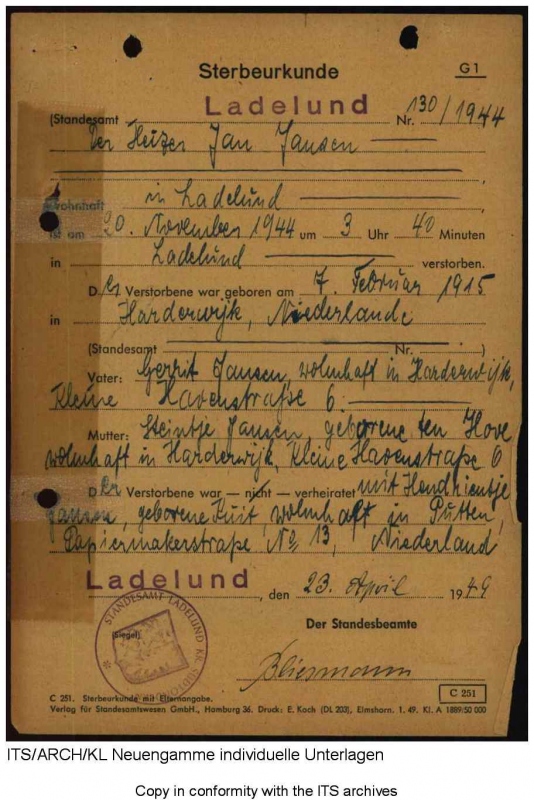 Sterbeurkunde
G 1
(Standesamt Ladelund Nr. 130/1944
Der Heizer Jan Jansen
wohnhaft in Ladelund
ist am 20. November 1944 um 3 Uhr 40 Minuten
in Ladelund verstorben.
Der Verstorbene war geboren am 7. Februar 1915
in Harderwijk, Niederlande
(Standesamt Nr. )
Vater: Gerrit Jansen, wohnhaft in Harderwijk,
Kleine Havenstraße 6.
Mutter: Steintje Jansen geborene ten Hove
wohnhaft in Harderwijk, Kleine Havenstraße 6
Der Verstorbene war — nicht — verheiratet mit Hendrientje
Jansen, geborene Kuit, wohnhaft in Putten,
Papiermakerstraße No 13, Niederland
Ladelund, den 23. April 1949
STANDESAMT LADELUND KR.
(Siegel)
Der Standesbeamte
C 251. Sterbeurkunde mit Elternangabe.
C 251
Verlag für Standesamtswesen GmbH., Hamburg 36. Druck: E. Koch (DL 203), Elmshorn. 1. 49. Kl. A 1889/50 000
ITS/ARCH/KL Neuengamme individuelle Unterlagen
Copy in conformity with the ITS archives